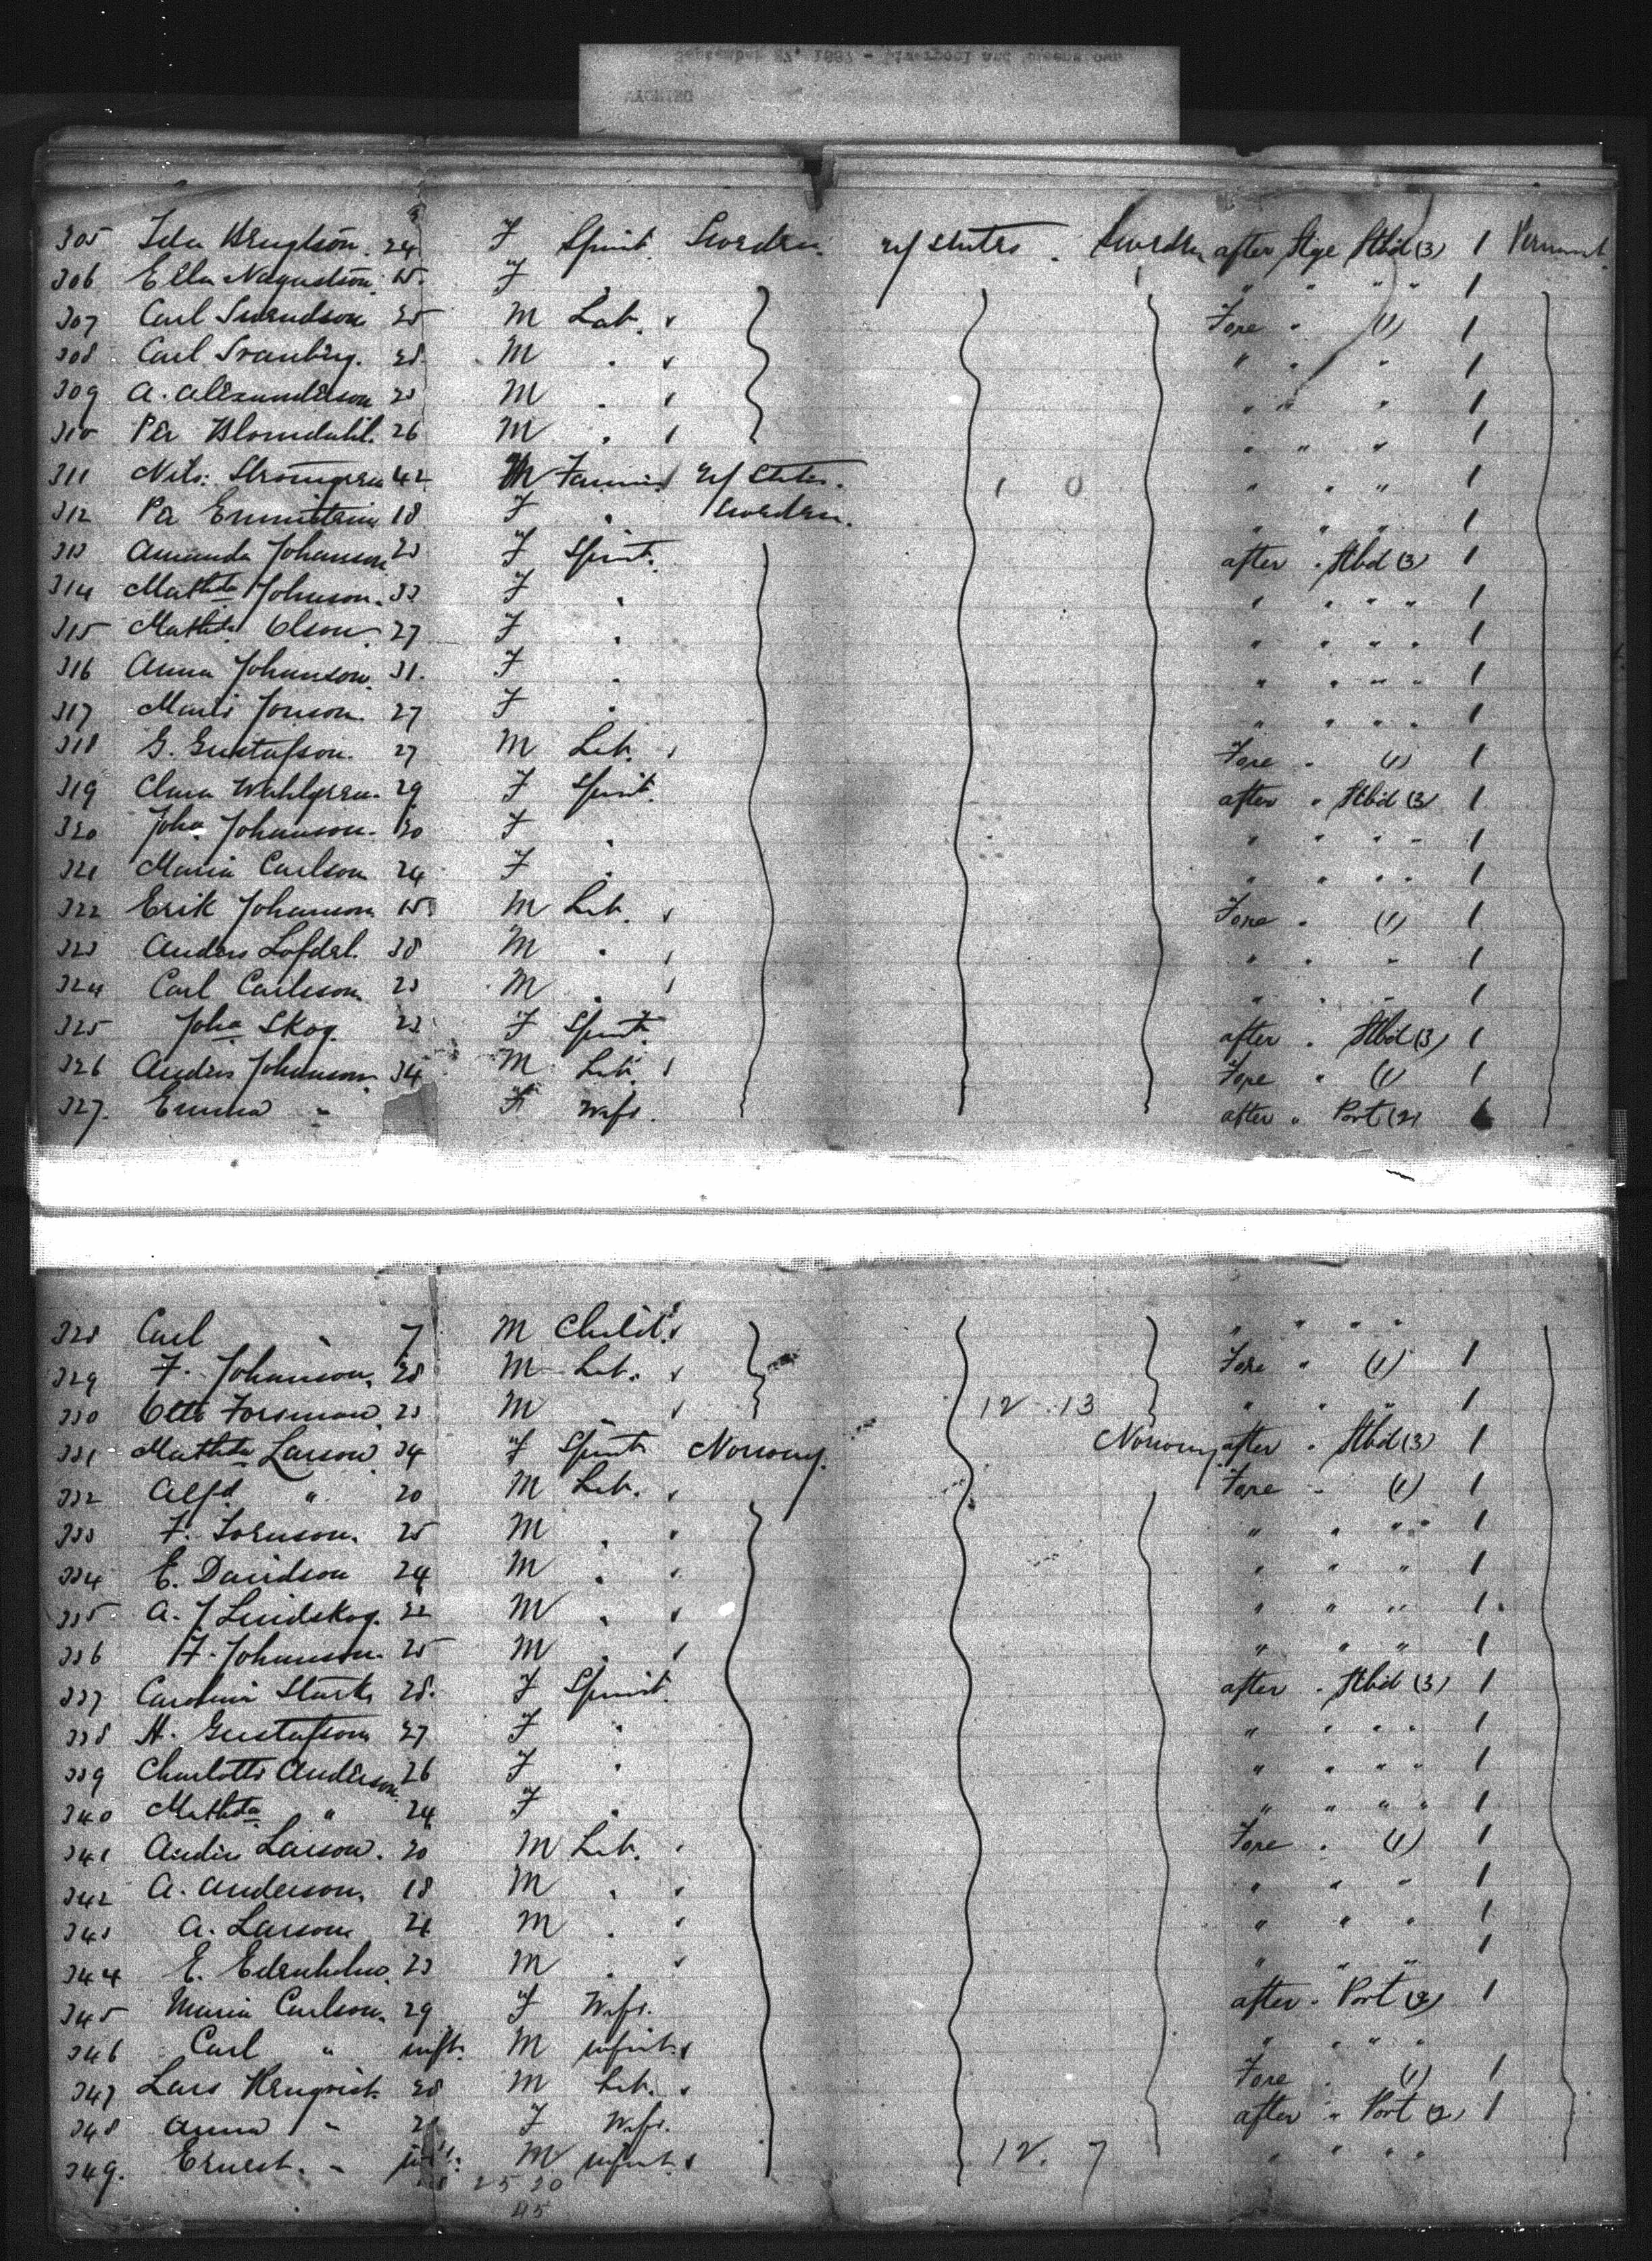 305 Ida 24 F Spinst. Sweden. U/ States. Sweden after Stge Stbd (3) 1 Perment.
306 Ella 15. F " " " " 1
307 Carl Svendson 25 M Lab. Fore " (1) 1
308 Carl 28. M " " " " 1
309 A. Alexanderson 23 M " " " " 1
310 Per Blomdahl. 26 M " " " " 1
311 Nils. Stromgren 42 M U/ States. 1 0 " " " 1
312 18 F " Sweden. " " " 1
313 Amanda Johanson 23 F Spinst. after " Stbd (3) 1
314 Mathda Johnson. 33 F " " " " " 1
315 Mathda Olson 27 F " " " " " 1
316 Anna Johanson. 31. F " " " " " 1
317 Jonson. 27 F " " " " " 1
318 G. Gustafson. 27 M Lab. Fore " (1) 1
319 Clara Wahlgren. 29 F Spinst. after " Stbd (3) 1
320 Joha Johanson. 20 F " " " " " 1
321 Maria Carlson 24 F " " " " " 1
322 Erik Johanson 15 M Lab. Fore " (1) 1
323 Anders Lofdal. 38 M " " " " 1
324 Carl Carlsson 23 M " " " " 1
325 Joha Skog. 23 F Spinst. after " Stbd (3) 1
326 Anders Johanson 34 M Lab. Fore " (1) 1
327. Emma " F Wife. after " Port (2)
328 Carl " 7 M Child. " " " "
329 F. Johanson. 28 M Lab. Fore " (1) 1
330 Otto Forsman. 23 M " 12 13 " " " 1
331 Mathda Larson 34 F Spinst Norway. Norway after " Stbd (3) 1
332 Alfd " 20 M Lab. Fore " (1) 1
333 F. 25 M " " " " 1
334 E. Davidson 24 M " " " " 1
335 A. J Lindskog. 22 M " " " " 1
336 Johanson. 25 M " " " " 1
337 Carolina Stark 28. F Spinst. after " Stbd (3) 1
338 H. Gustafson 27 F " " " " " 1
339 Charlotte Anderson 26 F " " " " " 1
340 Mathda " 24 F " " " " " 1
341 Larson. 20 M Lab. Fore " (1) 1
342 A. Anderson. 18 M " " " " 1
343 A. Larson M " " " " 1
344 E. Edenholm. 23 M " " " " 1
345 Maria Carlson. 29 F Wife. after " Port (2) 1
346 Carl " inft. M infant " " " "
347 Lars 28 M Lab. Fore " (1) 1
348 Anna " F Wife. after " Port (2) 1
349. Ernest. " M infant 12. 7 " " " "
25 20
45